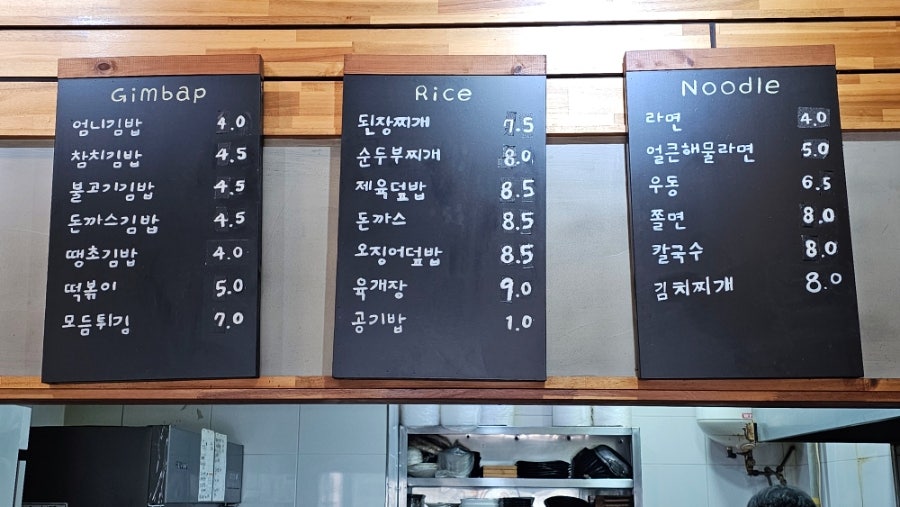 Gimbap
엄니김밥 4.0
참치김밥 4.5
불고기김밥 4.5
돈까스김밥 4.5
땡초김밥 4.0
떡볶이 5.0
모듬튀김 7.0
Rice
된장찌개 7.5
순두부찌개 8.0
제육덮밥 8.5
돈까스 8.5
오징어덮밥 8.5
육개장 9.0
공기밥 1.0
Noodle
라면 4.0
얼큰해물라면 5.0
우동 6.5
쫄면 8.0
칼국수 8.0
김치찌개 8.0